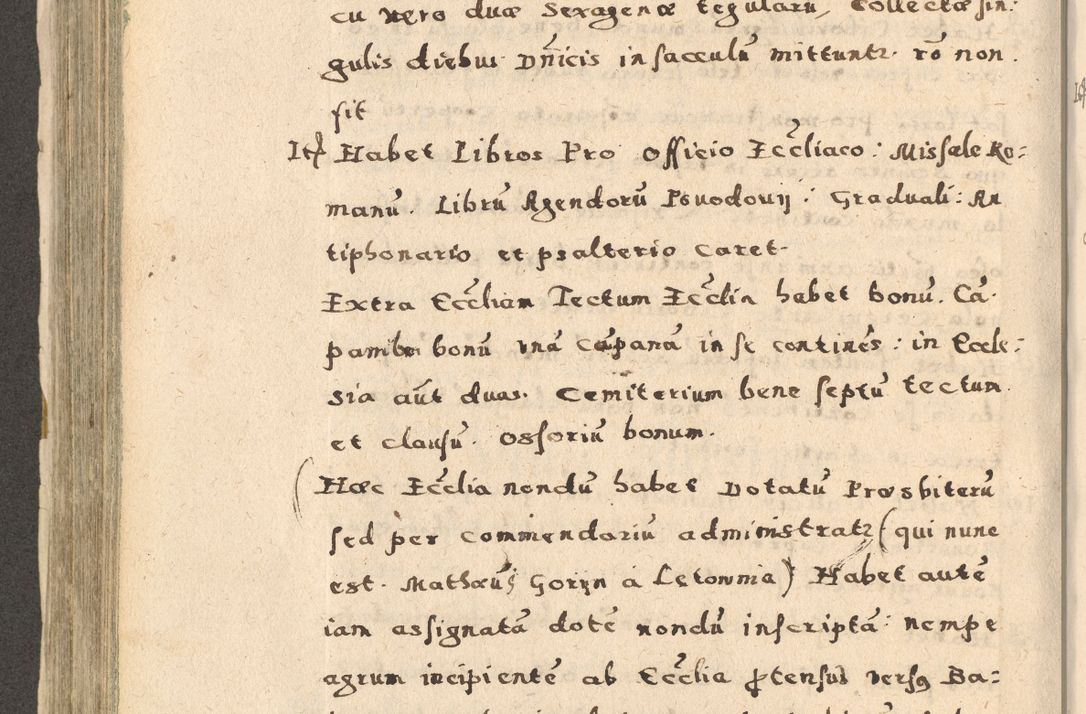 cu vero duæ Sexagenæ tegularū, Collectæ sin:
gulis diebus Dn̄icis in sacculū mittuntr. rō non
sit
Itē Habet Libros Pro officio Eccl̄iaco: Missale Ro:
manū. Librū Agendorū Psuodovij: Graduali: An
tiphonario et psalterio caret.
Extra Eccl̄iam Tectum Eccl̄ia habet bonū. Cā.
panile bonū unā Cāpanā in se continēs: in Eccle:
sia aūt duas. Cemiterium bene septū tectum
et clausū. Ossoriū bonum.
Hæc Eccl̄ia nondū habet Dotatū Præsbiterū
sed per Commendariū administratr (qui nunc
est. Mathæus Goryn a Letownia) Habet autē
iam assignatā dotē nondū inscriptā: nempe
agrum incipientē ab Eccl̄ia ptensus versq Ba: